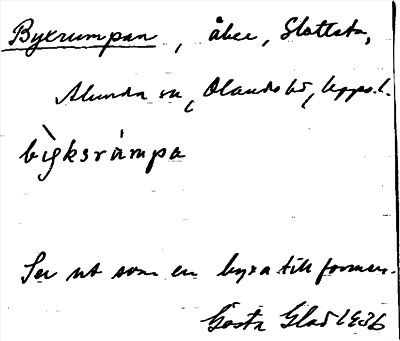 Byxrumpan, åker, Slottsta,
Alunda sn, Olands hd, Upps. l.
bỳksrúmpa
Ser ut som en byxa till formen.
Gösta Glad 1936